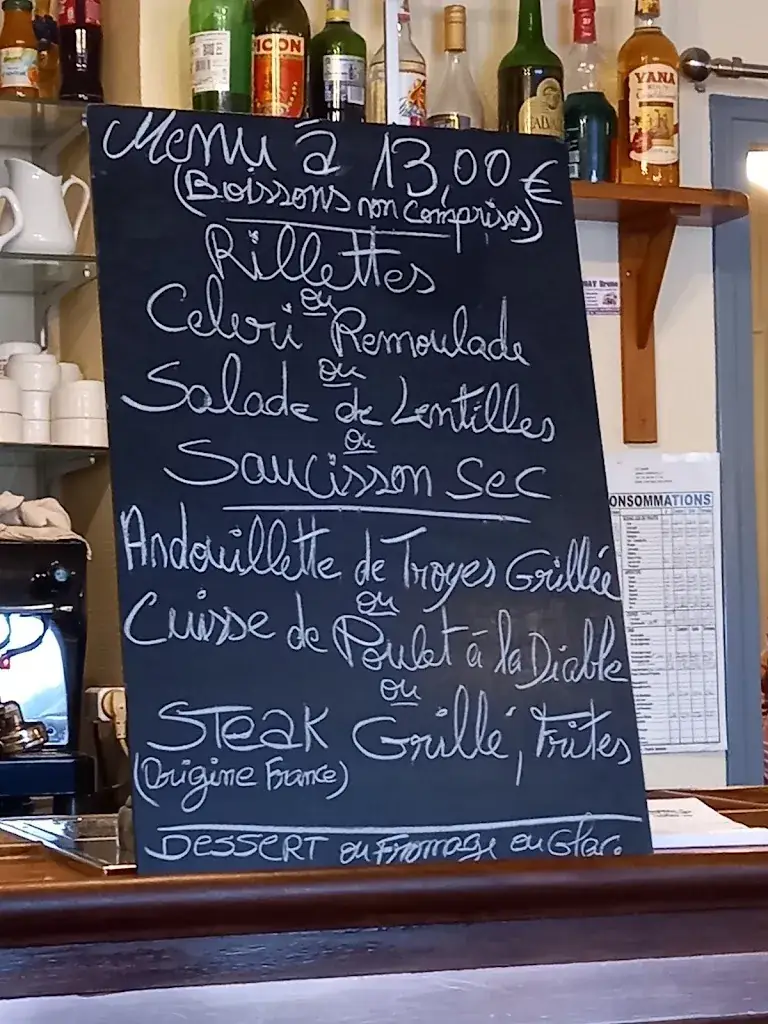 Menu à 13,00 €
(Boissons non comprises)
Rillettes
ou
Celeri Remoulade
ou
Salade de Lentilles
ou
Saucisson Sec
Andouillette de Troyes Grillée
ou
Cuisse de Poulet à la Diable
ou
Steak Grillé, Frites
(Origine France)
DESSERT ou Fromage ou Glac.
YANA
ONSOMMATIONS